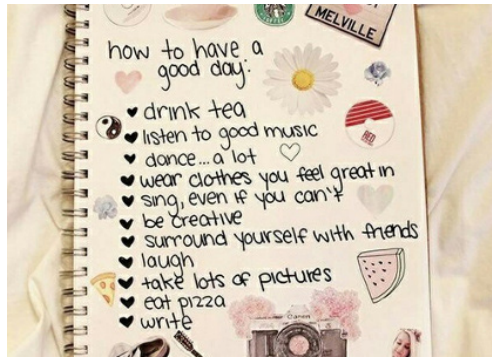 MELVILLE
how to have a
good day:
drink tea
listen to good music
dance... a lot
wear clothes you feel great in
sing, even if you can't
be creative
surround yourself with friends
laugh
take lots of pictures
eat pizza
write
RED
Canon